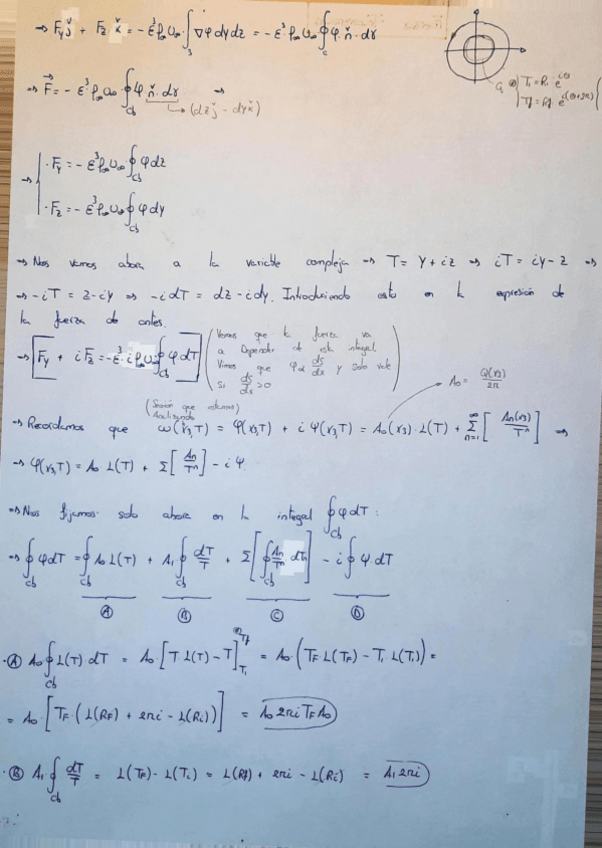 → Fy ǰ + Fz ǩ = -ε³ρ∞U∞ ∫s ∇φ dydz = -ε³ρ∞U∞ ∮c φ ň·dσ
C₁ Ti = Ri · e^{iθ}
Tf = Rf · e^{i(θ+2π)}
→ F⃗ = -ε³ρ∞U∞ ∮cb φ ň·dσ →
(dzǰ - dyǩ)
→ { · Fy = -ε³ρ∞U∞ ∮cb φdz
· Fz = -ε³ρ∞U∞ ∮cb φdy
→ Nos vamos ahora a la variable compleja → T = Y + iz ⇒ iT = iy - z ⇒
⇒ -iT = z - iy ⇒ -idT = dz - idy. Introduciendo esto en la expresión de
la fuerza de antes.
→ [Fy + iFz = -ε³ · iρ∞U∞ ∮cb φdT]
(Vemos que la fuerza va
a Depender de esta integral.
Vimos que φ α ds/dx y solo vale
si ds/dx > 0
A₀ = Q(x₃)/2π
(Sección que estamos
Analizando
→ Recordamos que ω(x₃,T) = φ(x₃,T) + iψ(x₃,T) = A₀(x₃)·L(T) + Σ n=1 ∞ [An(x₃)/Tⁿ] ⇒
→ φ(x₃,T) = A₀ L(T) + Σ[An/Tⁿ] - iψ.
→ Nos fijamos solo ahora en la integral ∮cb φdT :
→ ∮cb φdT = ∮cb A₀L(T) + A₁∮cb dT/T + Σ[∮cb An/Tⁿ dT] - i∮cb ψ·dT
Ⓐ Ⓑ Ⓒ Ⓓ
· Ⓐ A₀∮cb L(T)·dT = A₀·[T·L(T) - T] Ti Tf = A₀·(TF·L(TF) - Ti·L(Ti)) =
= A₀·[TF·(L(RF) + 2πi - L(Ri))] = A₀2πiTFA₀
· Ⓑ A₁∮cb dT/T = L(TF) - L(Ti) = L(Rf) + 2πi - L(Ri) = A₁2πi